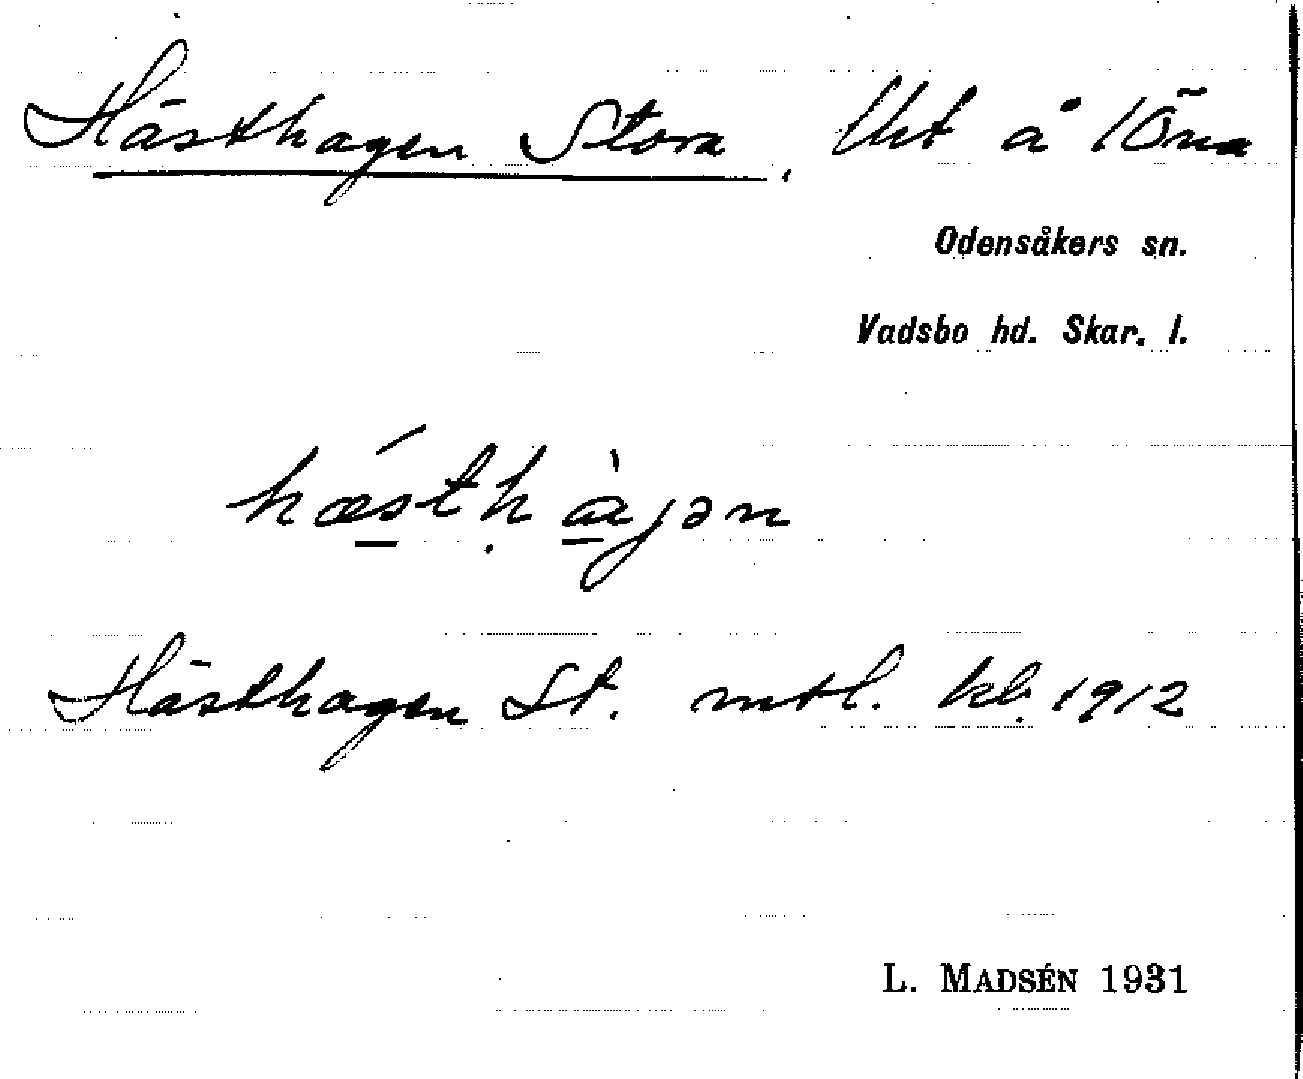 Hästhagen Stora. Uht å 1Öna
Odensåkers sn.
Vadsbo hd. Skar. l.
hǽstḥàjən
Hästhagen St. mtl. kb. 1912
L. MADSÉN 1931